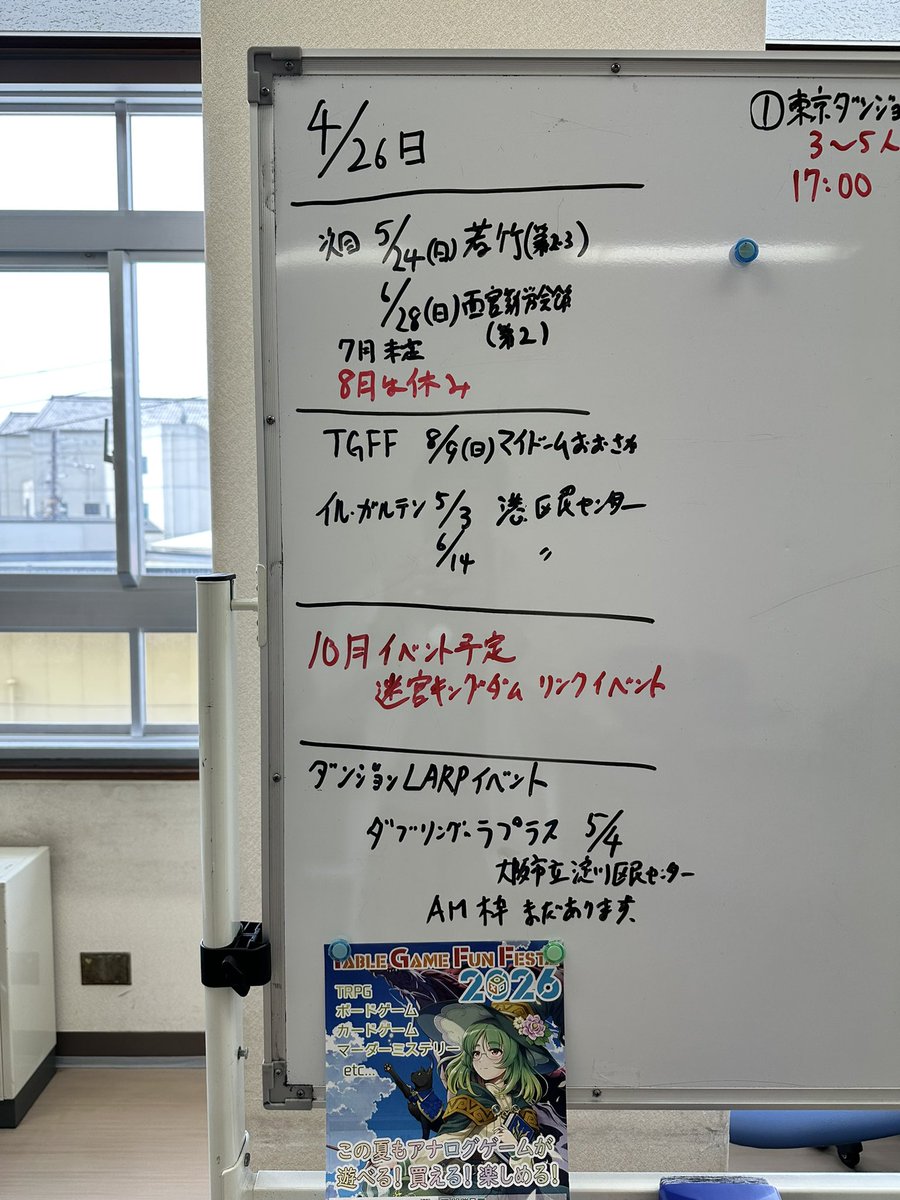 4/26日
次回 5/24(日) 若竹(第2.3)
6/28(日) 西宮新労会館
(第2)
7月 未定
8月は休み
TGFF 8/9(日) マイドームおおさか
イル・ガルテン 5/3 港区民センター
6/14 〃
10月 イベント予定
迷宮キングダム リンクイベント
ダンジョンLARPイベント
ダブリング・ラプラス 5/4
大阪市立淀川区民センター
AM枠 まだあります、
①東京ダンジョ
3〜5人
17:00
TABLE GAME FUN FEST
2026
TRPG
ボードゲーム
カードゲーム
マーダーミステリー
etc...
この夏もアナログゲームが
遊べる!買える!楽しめる!